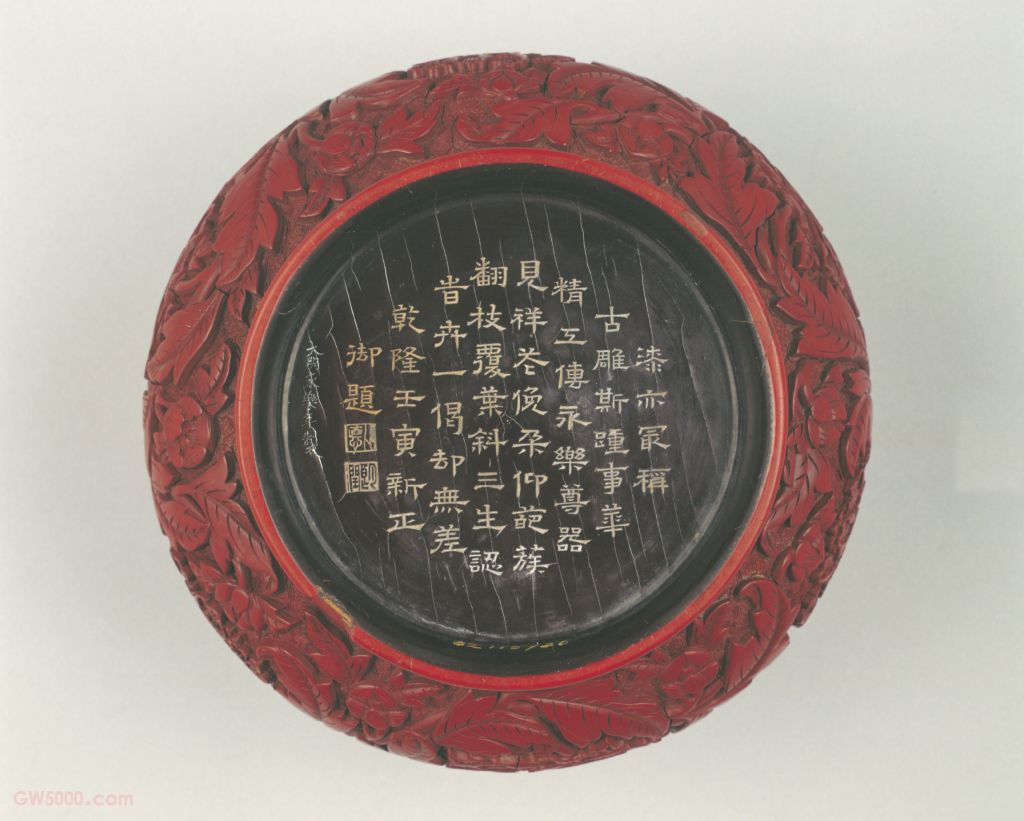 漆亦冣稱
古雕斯踵事華
精工傳永樂尊器
見祥花俛朵仰葩蔟
翻枝覆葉斜三生認
昔卉一偈却無差
乾隆壬寅新正
御題
大明永樂年製
GW5000.com